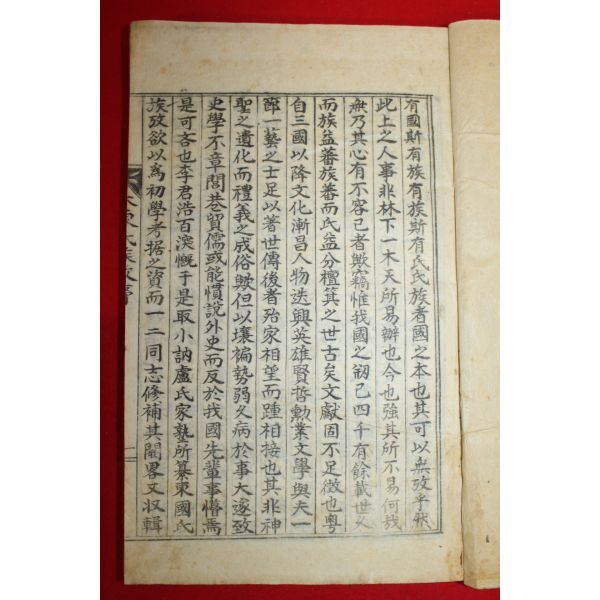 有國斯有族有族斯有氏氏族者國之本也其可以無攷乎然
此上之人事非林下一木天所易辦也今也強其所不易何哉
無乃其心有不容已者歟竊惟我國之刱已四千有餘載世久
而族益蕃族蕃而氏益分檀箕之世古矣文獻固不足徵也粤
自三國以降文化漸昌人物迭興英雄賢哲勳業文學與夫一
節一藝之士足以著世傳後者殆家相望而踵相接也其非神
聖之遺化而禮義之成俗歟但以壤褊勢弱久病於事大遂致
史學不章閭巷貿儒或能慣說外史而反於我國先輩事懵焉
是可吝也李君浩百深慨于是取小訥盧氏家塾所纂東國氏
族攷欲以爲初學考据之資而一二同志修補其闕畧又収輯
大東氏族攷序
一